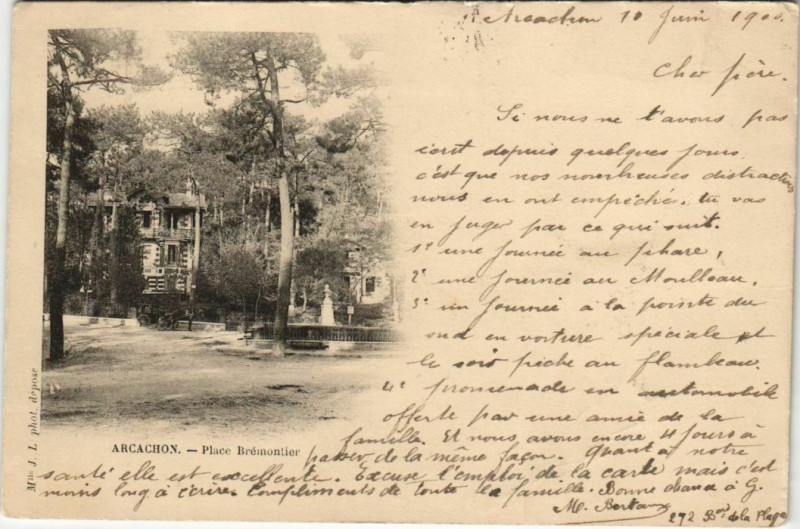 Arcachon 10 Juin 190
Cher père.
Si nous ne t'avons pas
écrit depuis quelques jours
c'est que nos nombreuses distractions
nous en ont empêché. tu vas
en juger par ce qui suit.
1° une journée au phare,
2° une journée au Moulleau,
3° un journée a la pointe du
sud en voiture spéciale et
le soir pêche au flambeau.
4° promenade en automobile
offerte par une amie de la
famille. Et nous avons encore 4 jours à
passer de la même façon. Quant à notre
santé elle est excellente. Excuse l'emploi de la carte mais c'est
moins long à écrire. Compliments de toute la famille. Bonne chance à G.
M.
272 Bard de la Plage
ARCACHON. — Place Brémontier
Mme J. L. phot. déposé